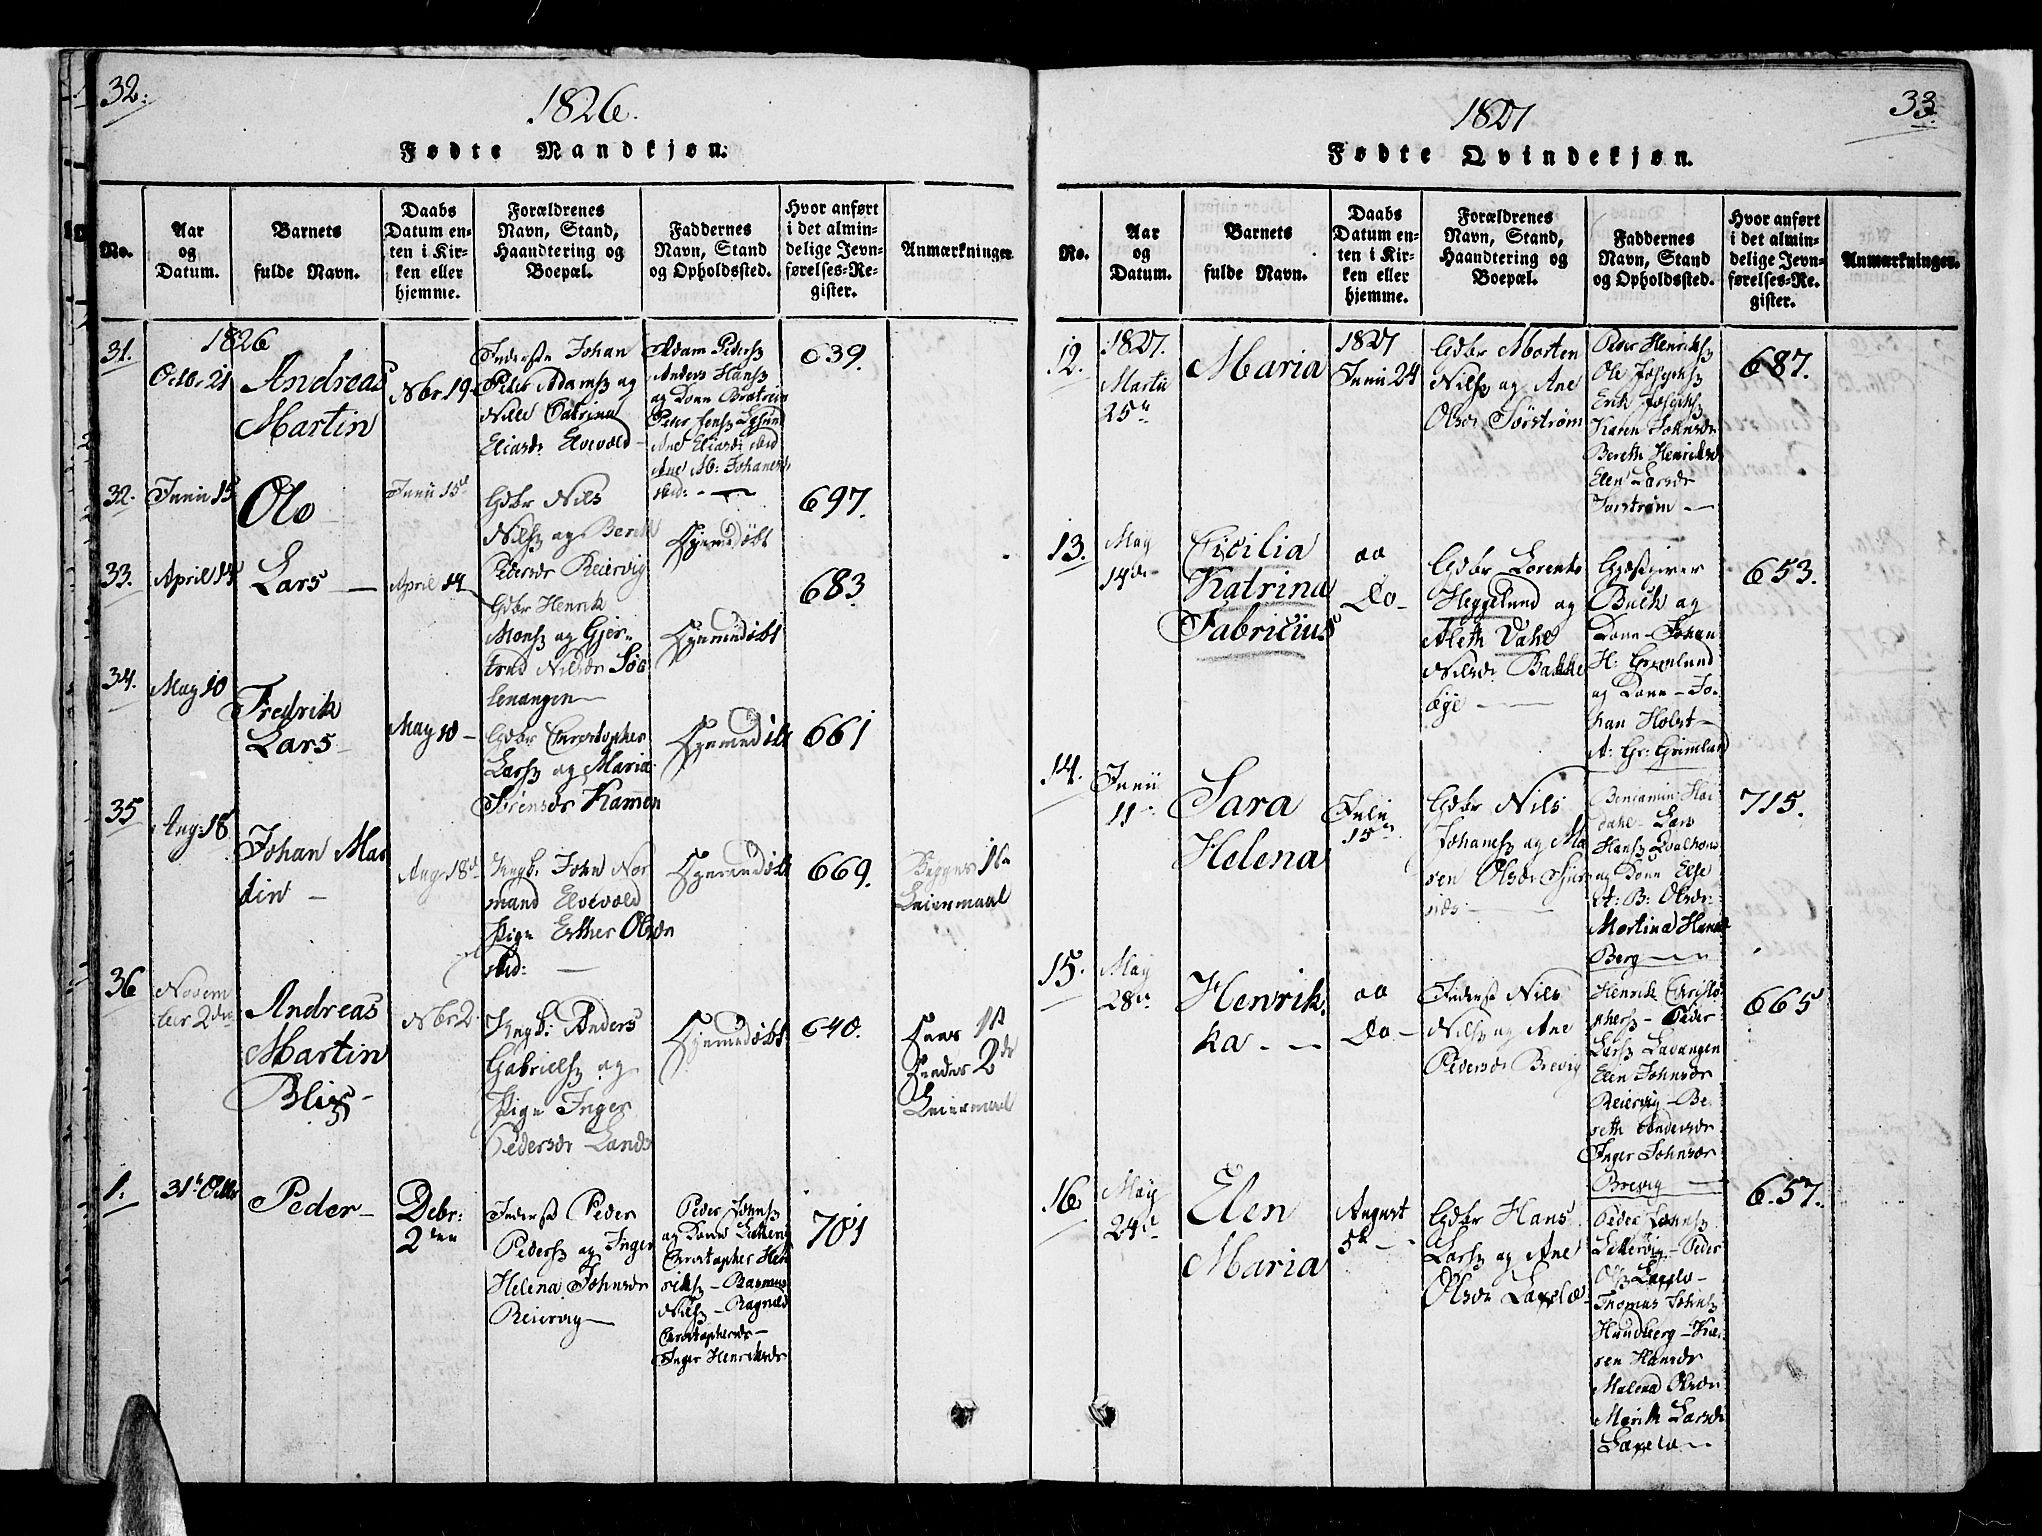 32.
1826.
Fødte Mandkjøn.
No.
Aar
og
Datum.
Barnets
fulde Navn.
Daabs
Datum en-
ten i Kir-
ken eller
hjemme.
Forældrenes
Navn, Stand,
Haandtering og
Boepæl.
Faddernes
Navn, Stand
og Opholdssted.
Hvor anført
i det almin-
delige Jevn-
førelses-Re-
gister.
Anmærkninger.
31.
1826
Octbr 21
Andreas
Martin
Nbr 19
Inderste Johan
Peter Adams og
Elvevold
Adam Peders
Anders Hans
og Kone
639.
32.
Junii 15
Ole
Junii 15d
Gdbr Nils
Nils og Berit
Pedersdr Reiervig
Hjemedøbt
697.
33.
April 14
Lars
April 14
Gdbr Henrik
Mons og Gjer-
trud Nilsdr Sør
lenangen
Hjemmedøbt
683.
34.
May 10
Fredrik
Lars
May 10
Gdbr Christopher
Lars og Maria
Sørensdr Kammen
Hjemmedøbt
661
35
Aug: 18
Johan Mar
tin
Aug 18d
Ungk. John Nor
mand Elvevold
Pige Esther Olsdr
Hjemmedøbt
669.
Begges 1ste
Leiermaal
36
Novem
ber 2den
Andreas
Martin
Blix
Nbr 2
Ungk: Anders
Gabriels og
Pige Inger
Pedersdr Lands
Hjemmedøbt
640.
Hans 1ste
Hendes 2de
Leiermaal
1.
31te Octbr
Peder
Debr:
2den
Inderst Peder
Peders og Inger
Helena Johnsdr
Reiervig
Peder Johns
og Kone
Christopher Hen
riks - Rasmus
Nils - Ragnild
Christophersdr -
Inger Henriksdr
701
33.
1827
Fødte Qvindekjøn.
No.
Aar
og
Datum.
Barnets
fulde Navn.
Daabs
Datum en-
ten i Kir-
ken eller
hjemme.
Forældrenes
Navn, Stand,
Haandtering og
Boepæl.
Faddernes
Navn, Stand
og Opholdssted.
Hvor anført
i det almin-
delige Jevn-
førelses-Re-
gister.
Anmærkninger.
12.
1827.
Martii
25de
Maria
1827
Junii 24
Gdbr Morten
Nils og Ane
Olsdr Sørstrøm
Peder Henriks
Ole Josephs
Erik Josephs
Karen Johnsdr
Bereth Henriksdr
Elen Larsdr
Sørstrøm
687.
13.
May
14de
Cicilia
Katrina
Fabricius
Do
Gdbr Lorents
Heggelund og
Aleth Dahl
Nilsdr Bakke
Gjestgiver
Buck og
Kone - Johan
H: Grønlund
og Kone - Jo-
han Holst
A: Gr: Grimlund
653.
14.
Junii
11
Sara
Helena
Julii
15de
Gdbr Nils
Johans og Ma
ren Olsdr
Benjamin
dahl Lars
Hans
og Kone Else
B: Olsdr
Martina Hansdr
Berg
715.
15.
May
28de
Henrik-
ka
Do
Inderst Nils
Nils og Ane
Pedersdr Brevig
Henrik Christo
phers - Peder
Lars Lavangen
Elen Johnsdr
Reiervig - Be-
reth Andersdr
Inger Johnsdr
Brevig
665
16.
May
24de
Elen
Maria
August
5te
Gdbr Hans
Lars og Ane
Olsdr Laxelv
Peder Johns
Peder
Ols Laxelv
Thomas Johns
Hundberg - Ka-
ren Hansdr
Malena Olsdr
Marith Larsdr
Laxelv
657.